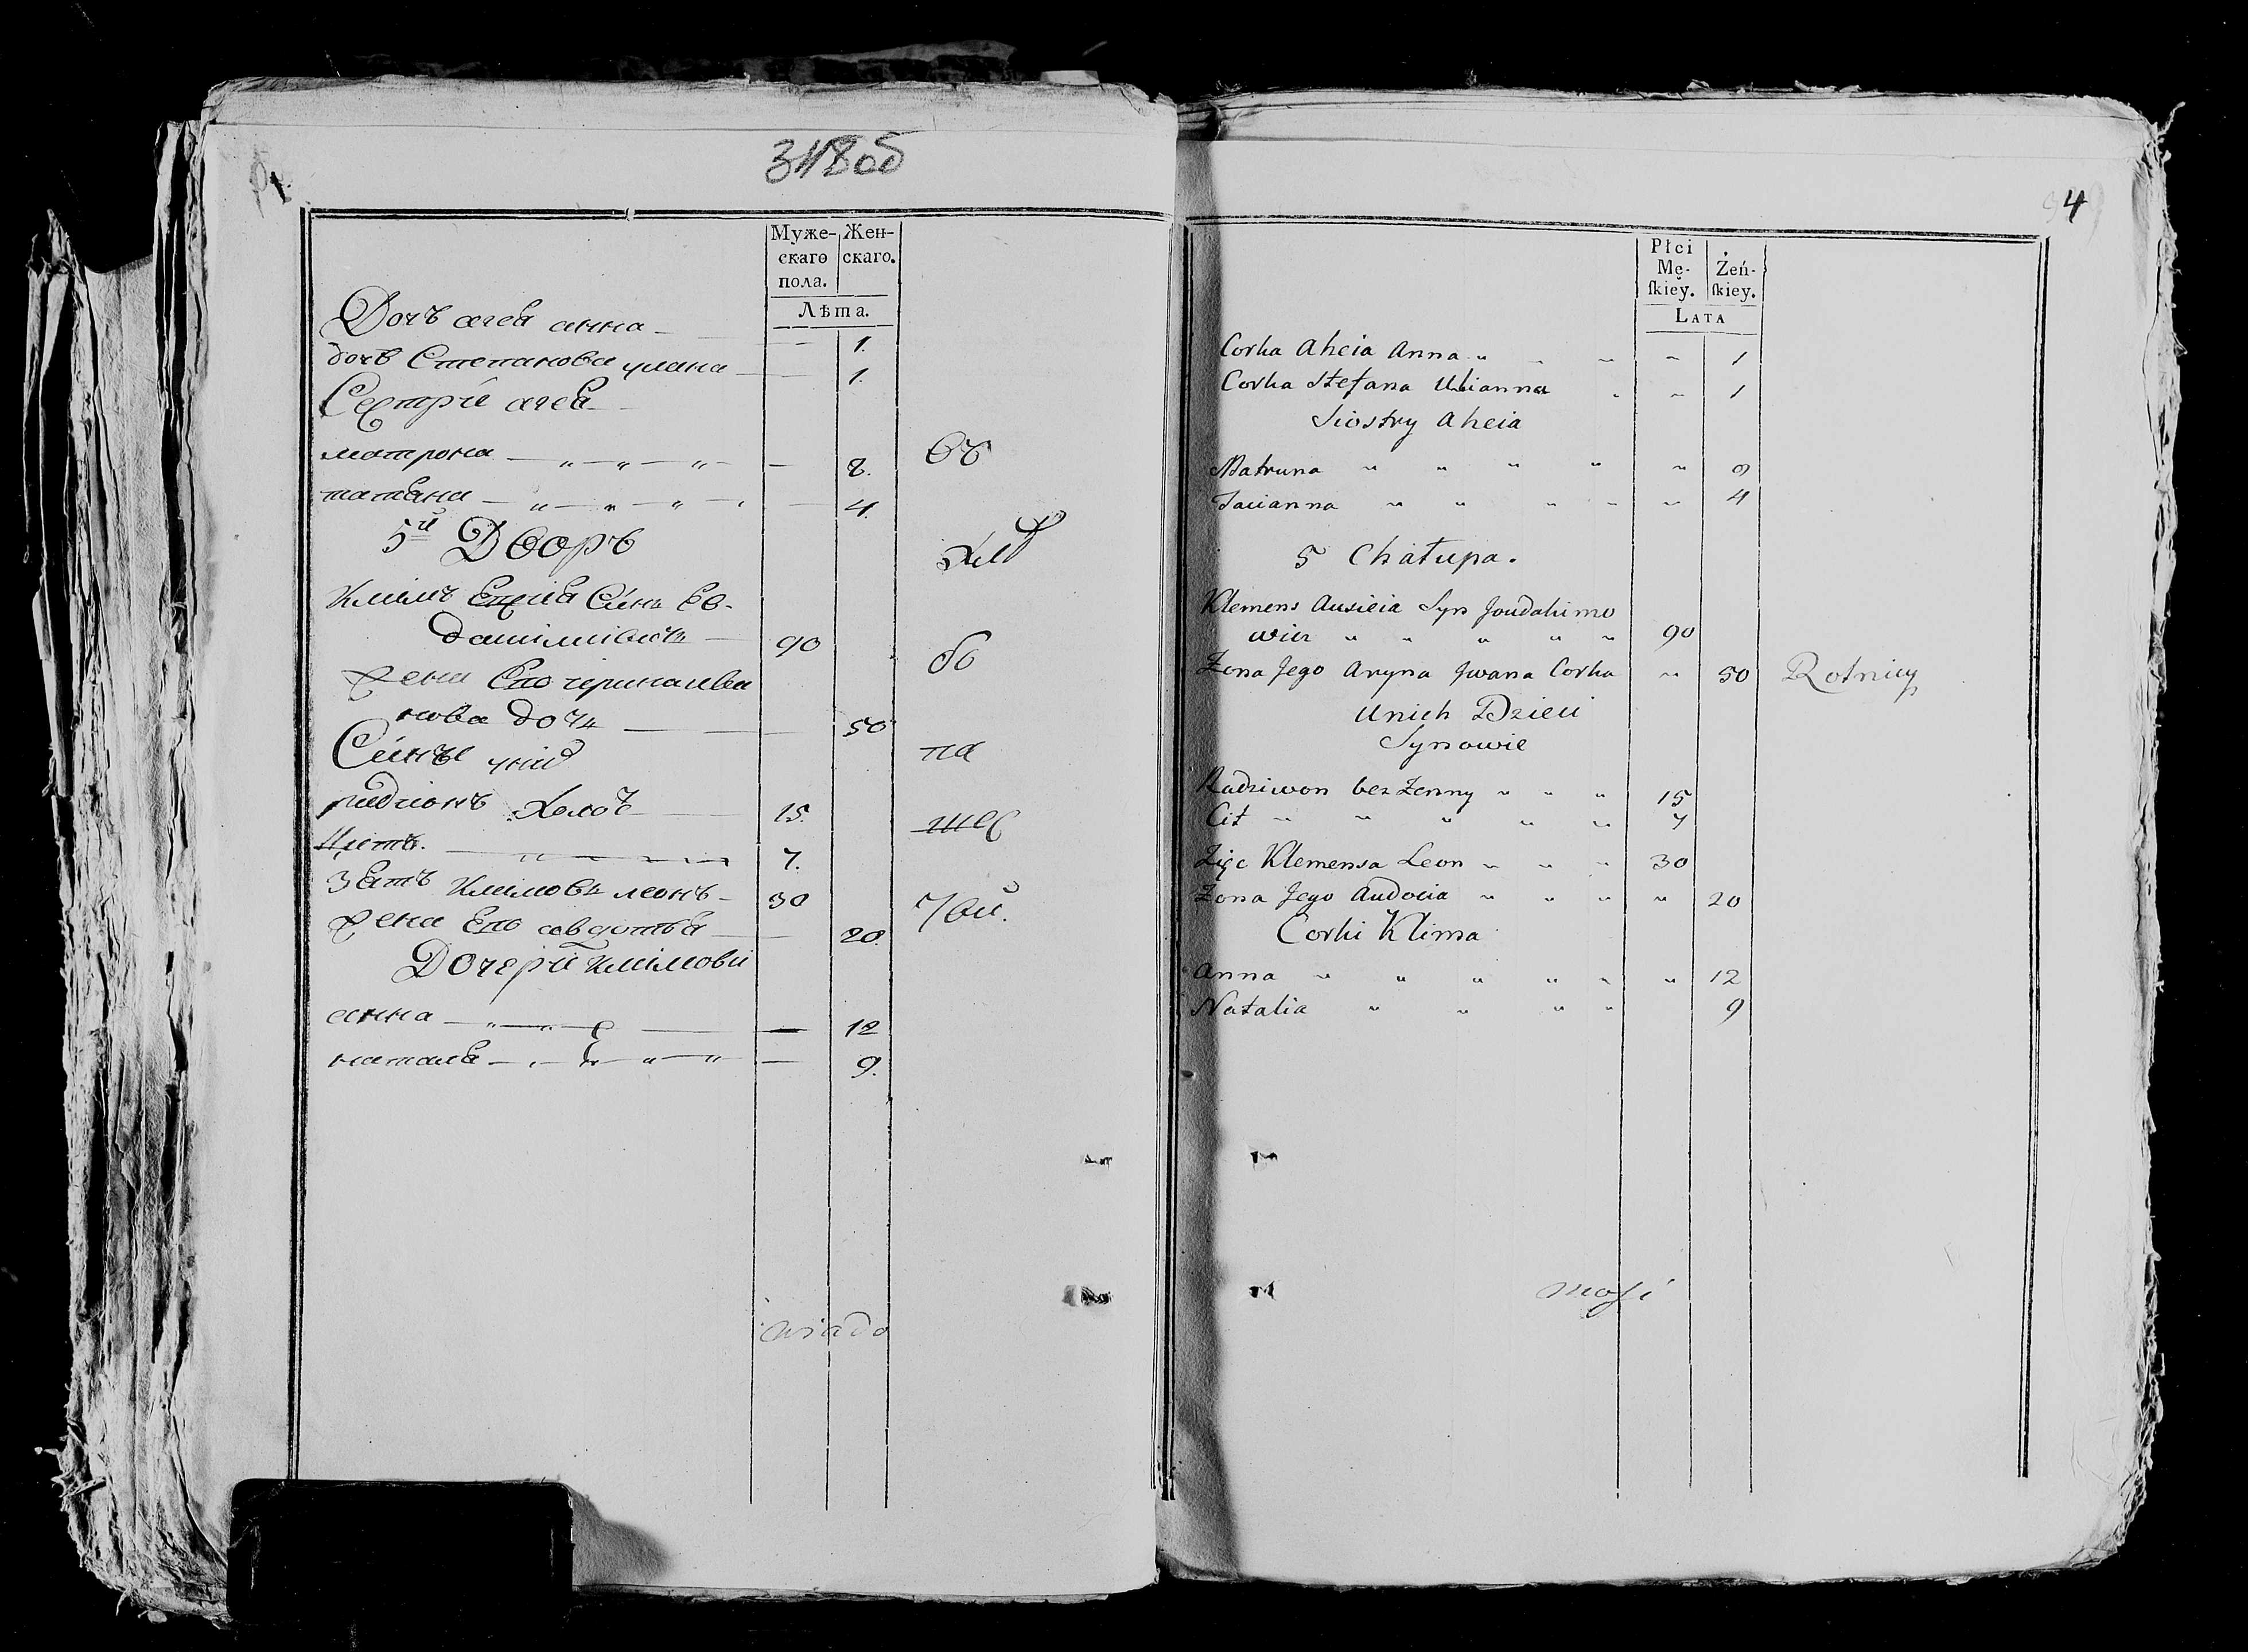 318об
Муже-
скаго
пола.
Жен-
скаго.
Лѣта.
Дочъ агея анна — — 1.
дочъ Степанова уляна — — 1.
Сестри агея
матрона — „ — „ — „ — — 8.
татяна — „ — „ — „ — — 4.
5й Дворъ
Климъ Сынъ Ев-
докимовичъ — 90
жена Его ива
нова дочь — 50
Сины
радионъ Холос 15.
Цитъ. — 7.
Зять Климовъ леонъ — 30
жена Его авдотья — — 20.
Дочери Климови
анна — „ — „ — 12
наталя — „ — „ — „ — 9.
въ
бо
па
шес
wiado
4
Płci
Mę-
ſkiey.
Żeń-
ſkiey.
LATA
Corka Aheia Anna „ „ „ „ 1
Corka Stefana Ulianna „ „ 1
Siostry Aheia
Matruna „ „ „ „ „ 8
Tacianna „ „ „ „ „ 4
5 Chałupa.
Klemens Ausieia Syn Joudahimo
wicz „ „ „ „ „ 90
Zona Jego Aryna Jwana Corka „ 50 Rotnicy
Unich Dzieci
Synowie
Radziwon bez Zenny „ „ „ 15
Cit „ „ „ „ „ 7
Zięc Klemensa Leon „ „ „ 30
Zona Jego Audocia „ „ „ „ 20
Corki Klima
Anna „ „ „ „ „ „ 12
Natalia „ „ „ „ 9
mosi